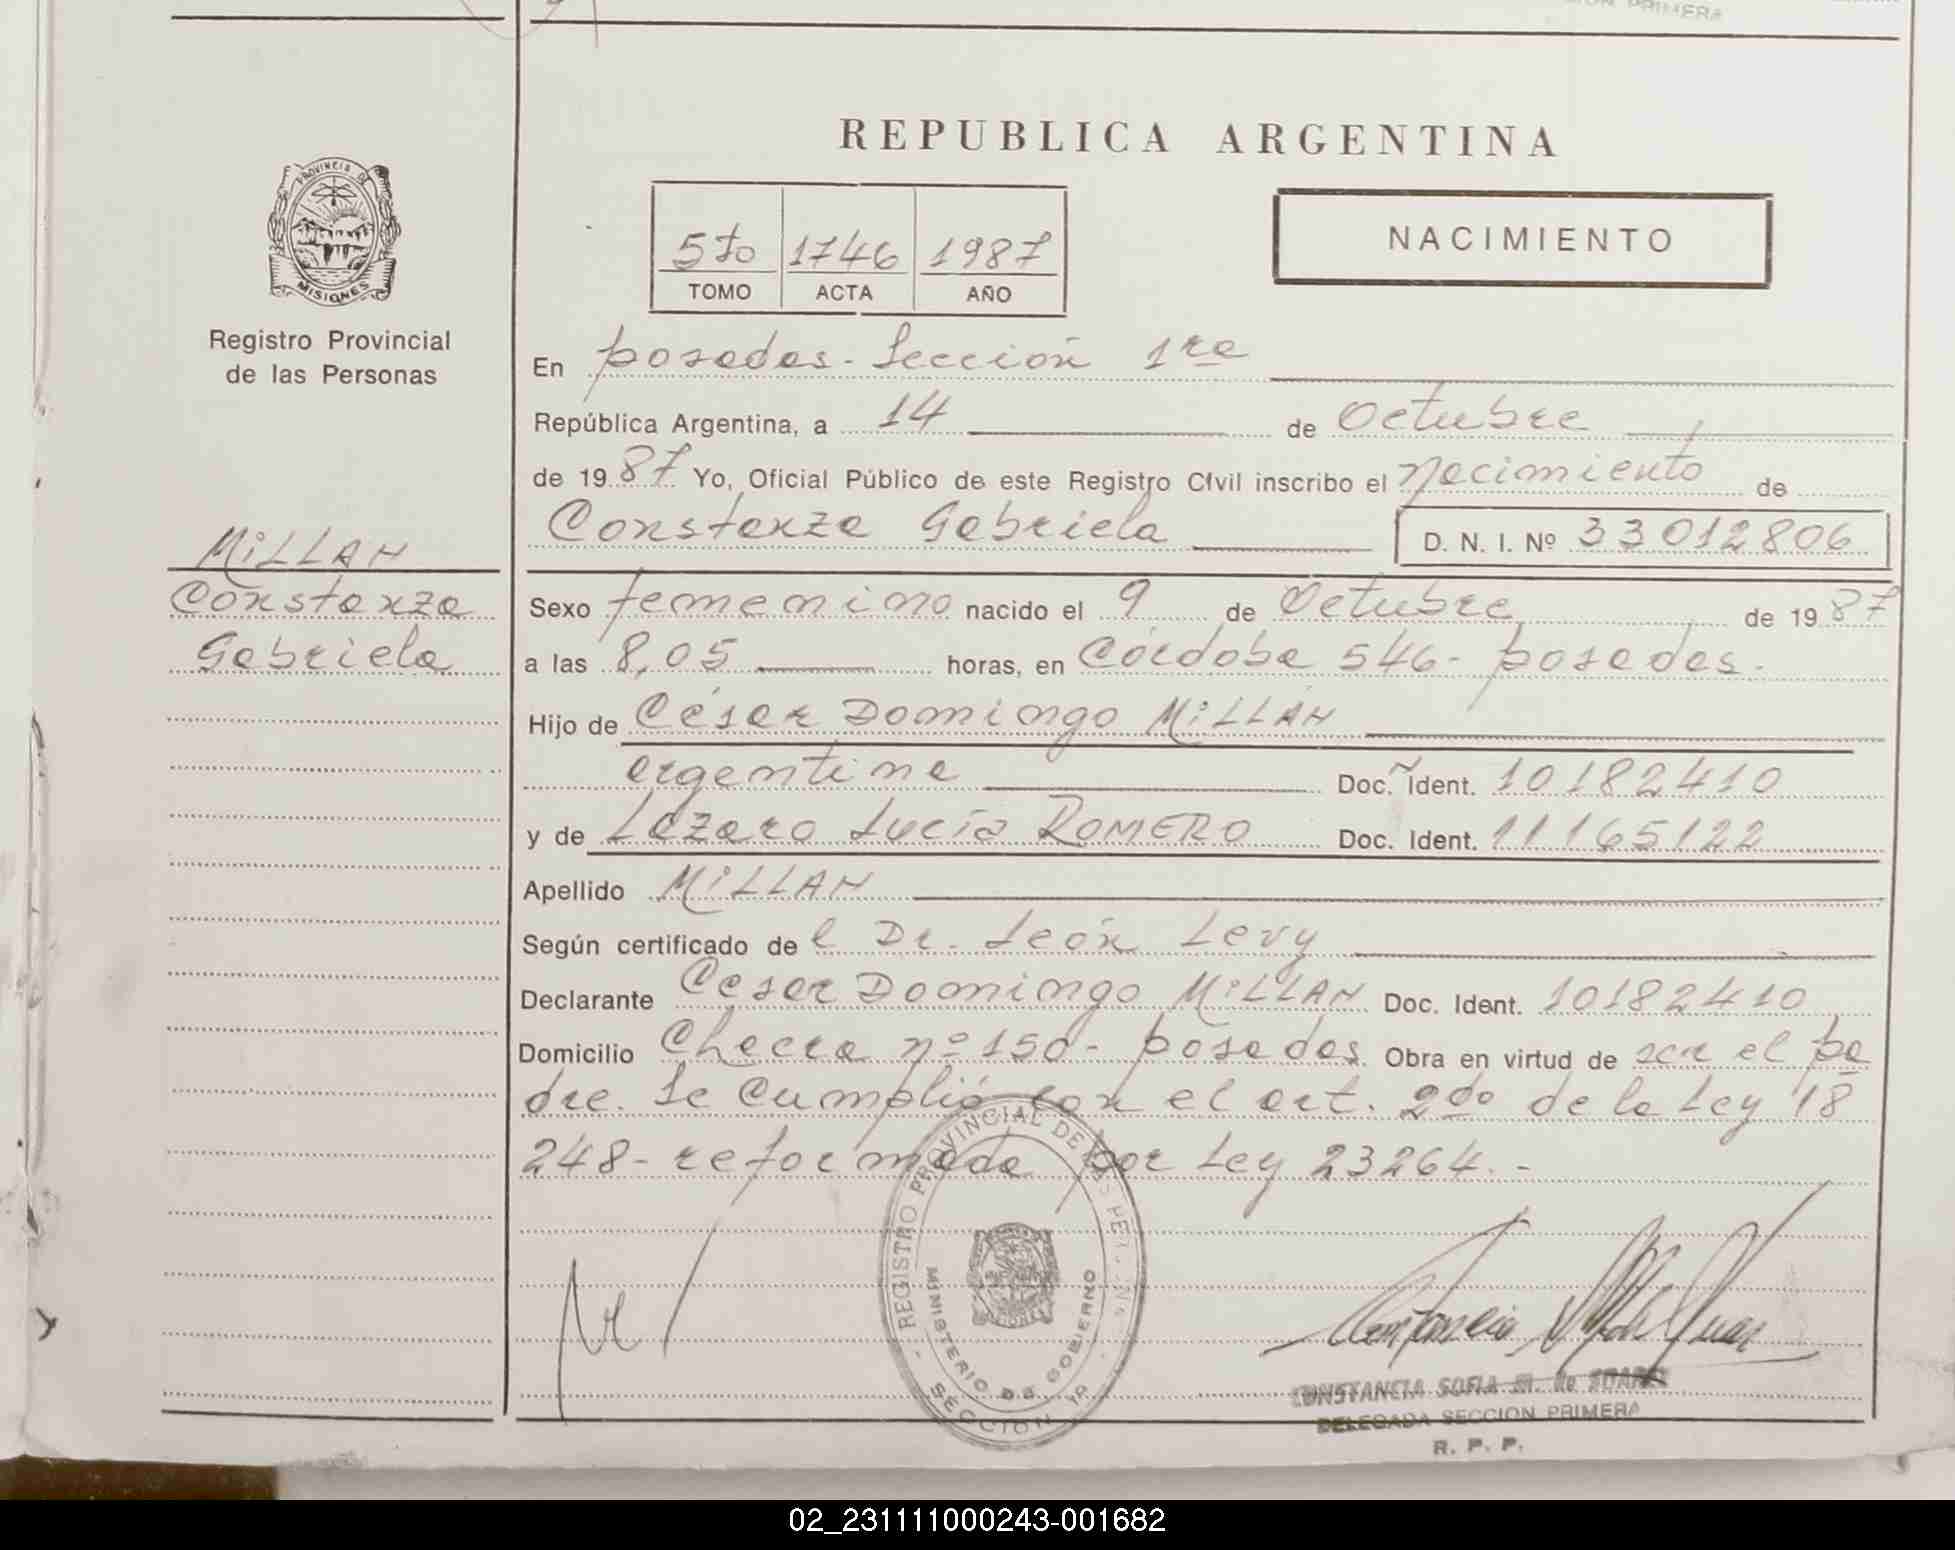 CION PRIMERA
REPUBLICA ARGENTINA
PROVINCIA DE
MISIONES
Registro Provincial
de las Personas
5to 1746 1987
TOMO ACTA AÑO
NACIMIENTO
En Posadas - Sección 1ra
República Argentina, a 14 de Octubre
de 1987 Yo, Oficial Público de este Registro Civil inscribo el Nacimiento de
Constanza Gabriela D. N. I. Nº 33012806
MiLLAN
Constanza
Gabriela
Sexo femenino nacido el 9 de Octubre de 1987
a las 8,05 horas, en Córdoba 546 - Posadas.
Hijo de César Domingo MiLLÁN
argentina Doc. Ident. 10182410
y de Lázara Lucía ROMERO Doc. Ident. 11165122
Apellido MiLLAN
Según certificado de l Dr. León Levy
Declarante César Domingo MiLLAN Doc. Ident. 10182410
Domicilio Chacra nº 150 - Posadas. Obra en virtud de ser el pa
dre. Se Cumplió con el art. 2do de la Ley 18
248 - reformada por Ley 23264. -
REGISTRO PROVINCIAL DE LAS PERSONAS
MINISTERIO DE GOBIERNO
SECCION 1a
CONSTANCIA SOFIA M. de SUAREZ
DELEGADA SECCION PRIMERA
R. P. P.
02_231111000243-001682